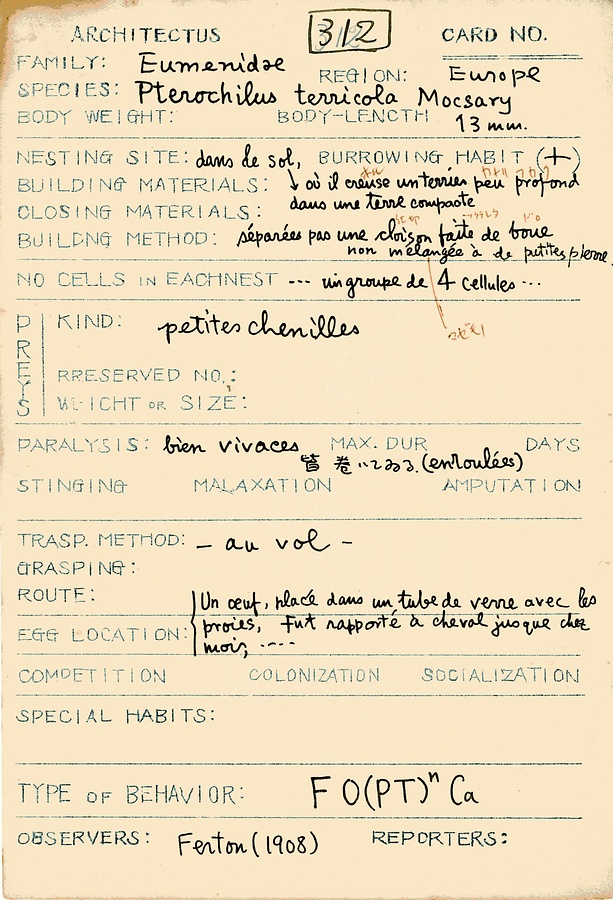 ARCHITECTUS 312 CARD NO.
FAMILY: Eumenidae REGION: Europe
SPECIES: Pterochilus terricola Mocsary
BODY WEIGHT: BODY-LENGTH 13 mm.
NESTING SITE: dans le sol, BURROWING HABIT (+)
BUILDING MATERIALS: ↓ où il creuse un terrier peu profond
CLOSING MATERIALS: dans une terre compacte
BUILDNG METHOD: séparées pas une cloison faite de boue
non mélangée à de petites pierre.
NO CELLS IN EACHNEST --- un groupe de 4 cellules ---
PREYS
KIND: petites chenilles
RRESERVED NO.:
WEICHT OR SIZE:
PARALYSIS: bien vivaces MAX. DUR DAYS
皆巻いている.(enroulées)
STINGING MALAXATION AMPUTATION
TRASP. METHOD: — au vol —
GRASPING:
ROUTE: Un œuf, placé dans un tube de verre avec les
EGG LOCATION: proies, fut rapporté à cheval jusque chez
moi, ----
COMPETITION COLONIZATION SOCIALIZATION
SPECIAL HABITS:
TYPE OF BEHAVIOR: F O(PT)ⁿ Ca
OBSERVERS: Ferton (1908) REPORTERS: